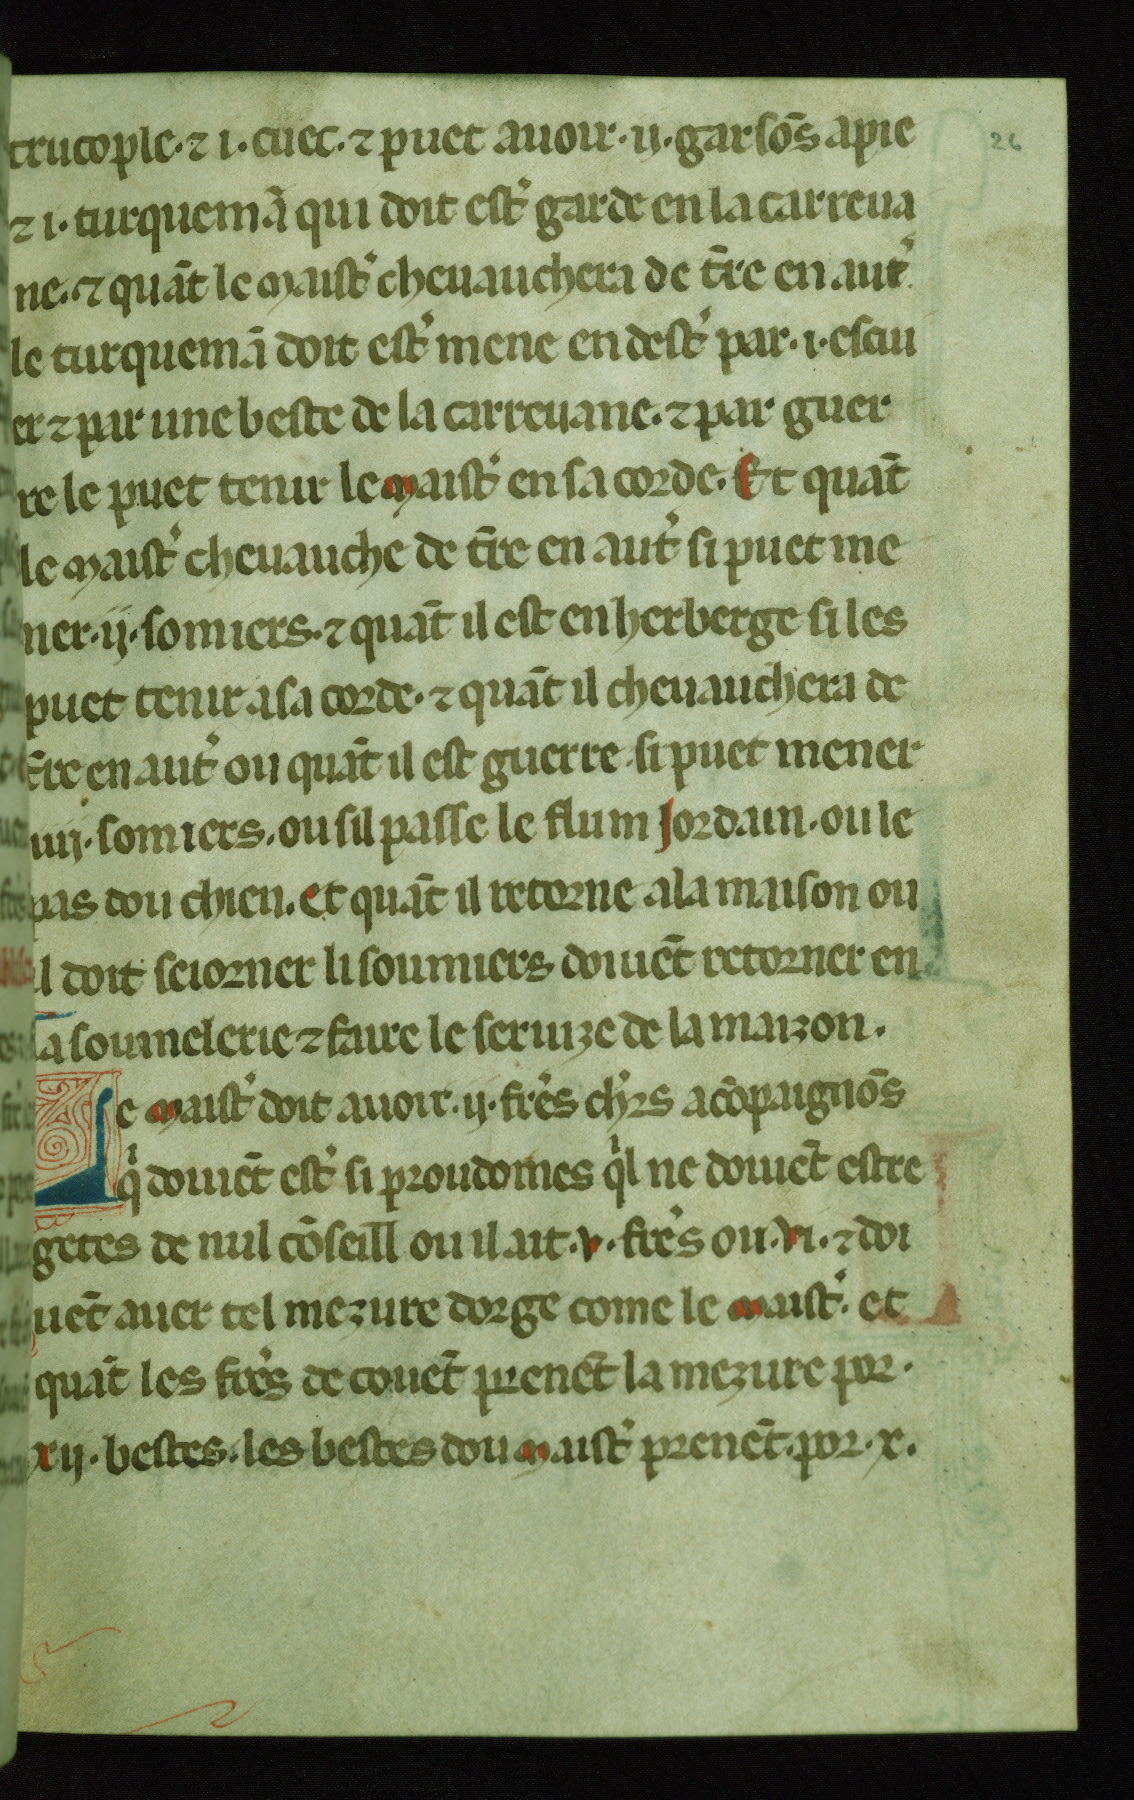 26
trucople · ⁊ i · cuec · ⁊ puet auoir · ij · garsōs apie
⁊ i · turquemā qui doit est᷑ garde en la carreua
ne · ⁊ quāt le maist᷑ cheuauchera de t̄re en aut᷑
le turquemā doit est᷑ mene en dest᷑ par · i · escu
er ⁊ par une beste de la carreuane · ⁊ par guer
re le puet tenir le maist᷑ en sa corde · Et quāt
le maist᷑ cheuauche de t̄re en aut᷑ si puet me
ner · ij · somiers · ⁊ quāt il est en herberge si les
puet tenir a sa corde · ⁊ quāt il cheuauchera de
t̄re en aut᷑ ou quāt il est guerre si puet mener
iiij · somiers · ou sil passe le flum Jordain · ou le
pas dou chien · et quāt il retorne a la maison ou
il doit seiorner li soumiers doiuēt retorner en
la soumelerie ⁊ faire le seruize de la maizon ·
Le maist᷑ doit auoir · ij · fre᷑s ch᷑rs a cōpaignōs
qͥ doiuēt est᷑ si proudomes qͥl ne doiuēt estre
getes de nul cōseill ou il ait · v · fre᷑s ou · vi · ⁊ doi
uēt auer tel mezure dorge come le maist᷑ · et
quāt les fre᷑s de couēt prenēt la mezure por ·
xij · bestes · les bestes dou maist᷑ prenēt · por · x ·